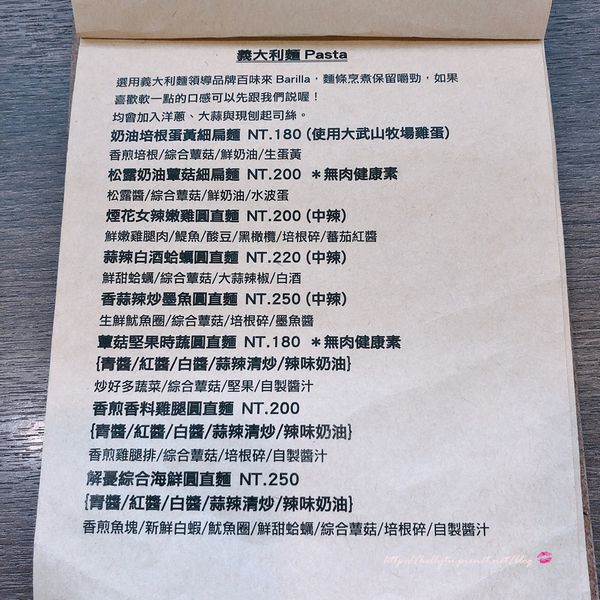 義大利麵 Pasta
選用義大利麵領導品牌百味來 Barilla，麵條烹煮保留嚼勁，如果
喜歡軟一點的口感可以先跟我們説喔！
均會加入洋蔥、大蒜與現刨起司絲。
奶油培根蛋黃細扁麵 NT.180 (使用大武山牧場雞蛋)
香煎培根/綜合蕈菇/鮮奶油/生蛋黃
松露奶油蕈菇細扁麵 NT.200 ＊無肉健康素
松露醬/綜合蕈菇/鮮奶油/水波蛋
煙花女辣嫩雞圓直麵 NT.200 (中辣)
鮮嫩雞腿肉/鯷魚/酸豆/黑橄欖/培根碎/蕃茄紅醬
蒜辣白酒蛤蠣圓直麵 NT.220 (中辣)
鮮甜蛤蠣/綜合蕈菇/大蒜辣椒/白酒
香蒜辣炒墨魚圓直麵 NT.250 (中辣)
生鮮魷魚圈/綜合蕈菇/培根碎/墨魚醬
蕈菇堅果時蔬圓直麵 NT.180 ＊無肉健康素
{青醬/紅醬/白醬/蒜辣清炒/辣味奶油}
炒好多蔬菜/綜合蕈菇/堅果/自製醬汁
香煎香料雞腿圓直麵 NT.200
{青醬/紅醬/白醬/蒜辣清炒/辣味奶油}
香煎雞腿排/綜合蕈菇/培根碎/自製醬汁
解憂綜合海鮮圓直麵 NT.250
{青醬/紅醬/白醬/蒜辣清炒/辣味奶油}
香煎魚塊/新鮮白蝦/魷魚圈/鮮甜蛤蠣/綜合蕈菇/培根碎/自製醬汁